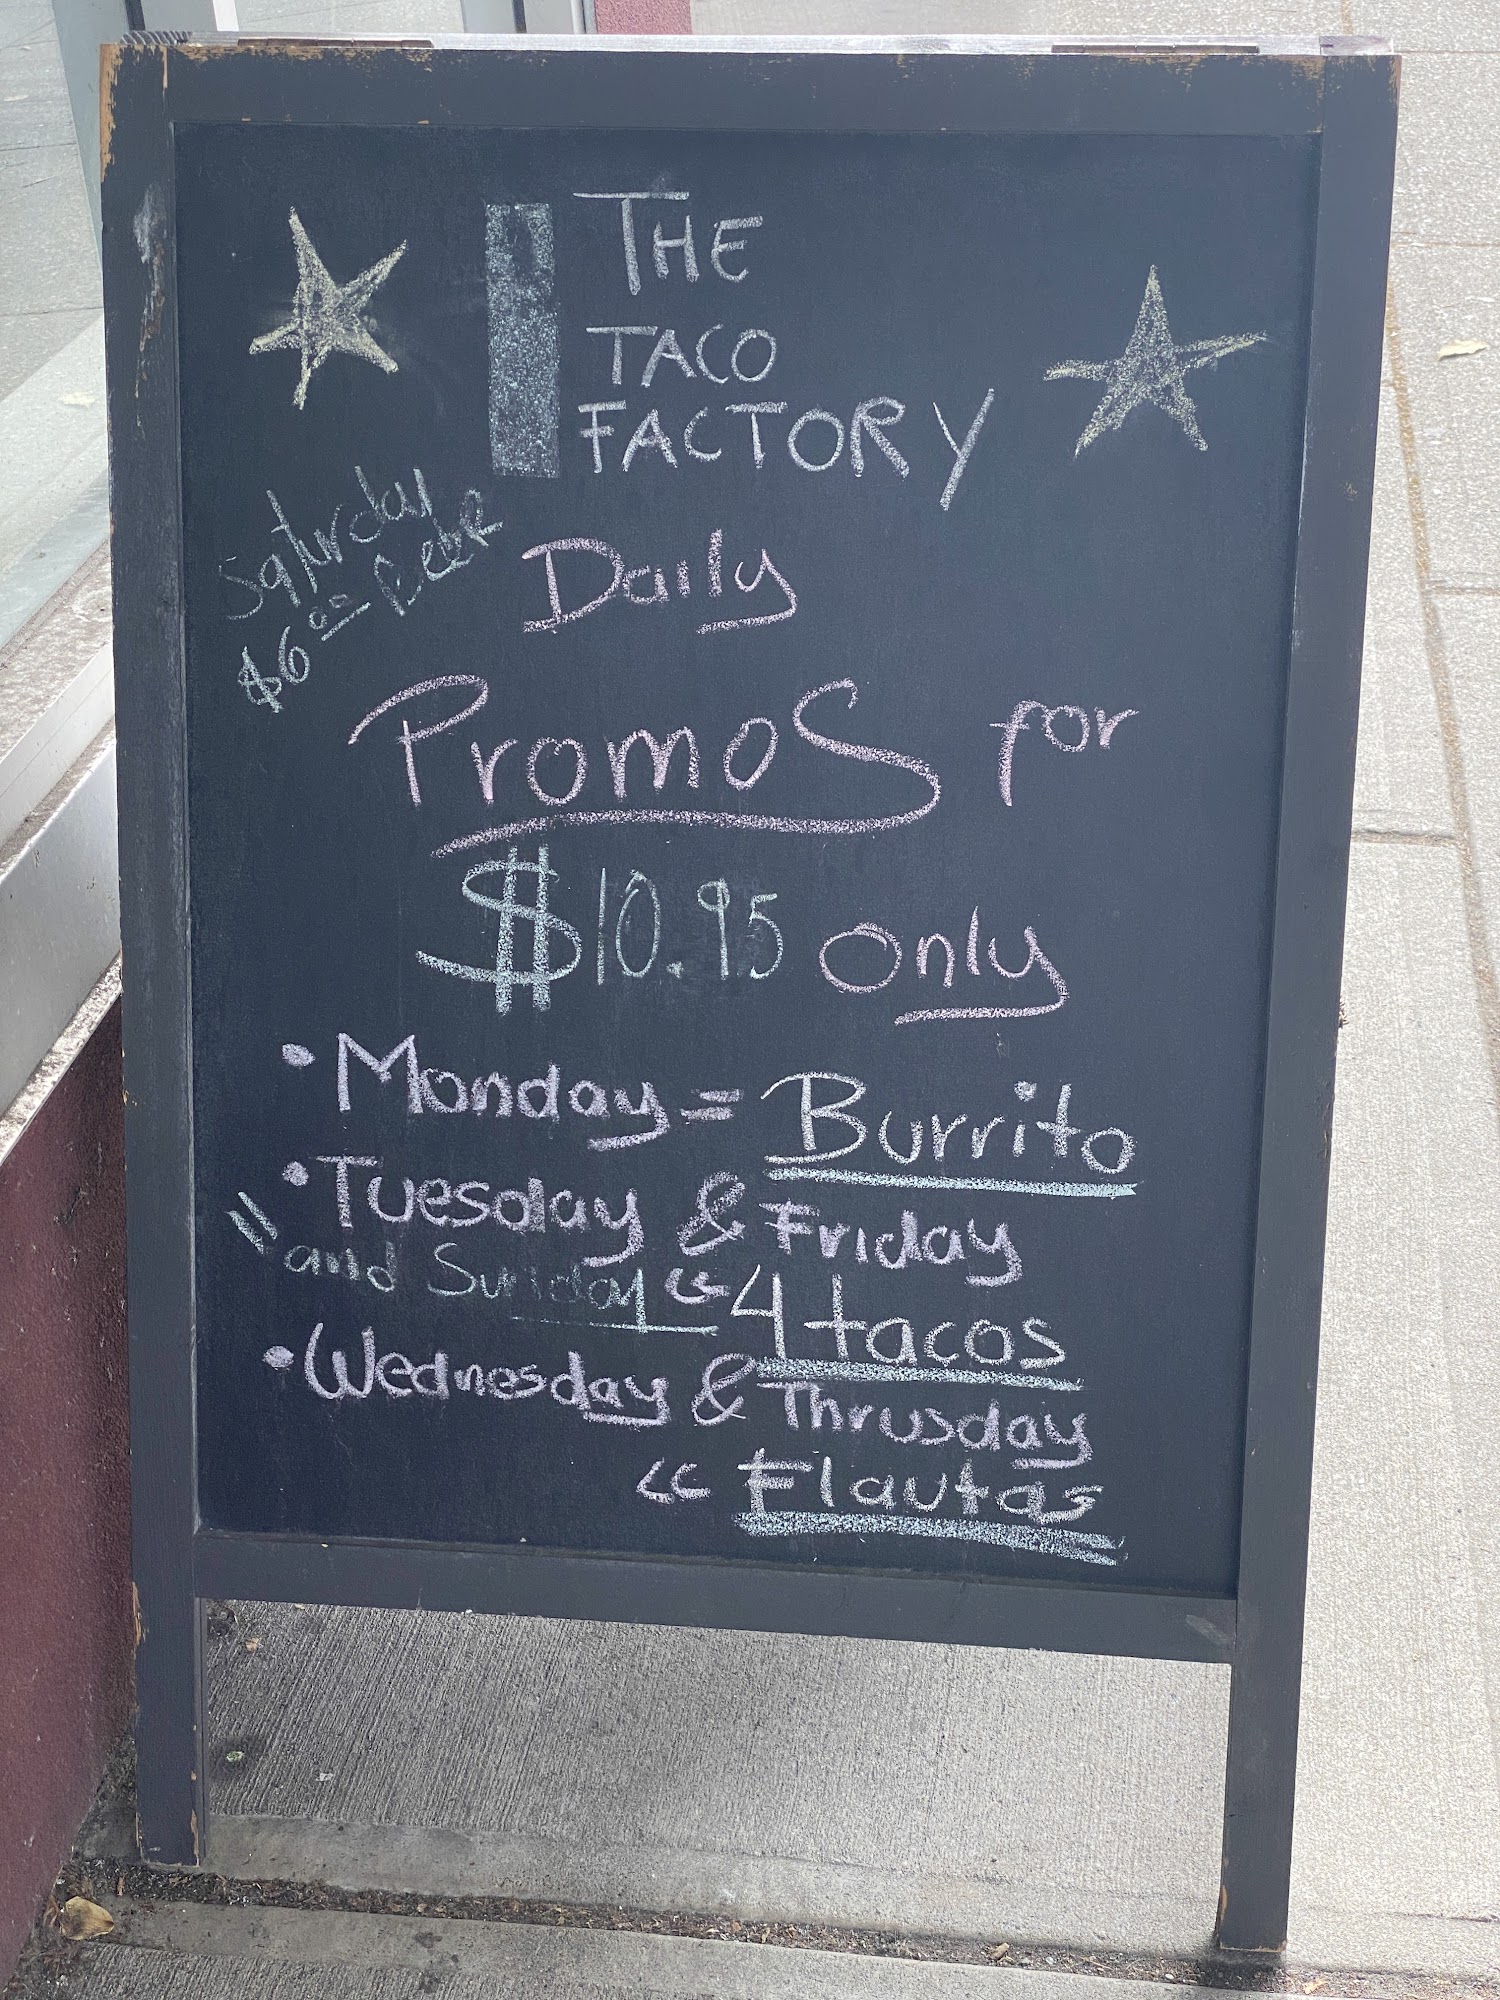 THE
TACO
FACTORY
Saturday
$6.00 Beer
Daily
Promos for
$10.95 only
• Monday = Burrito
• Tuesday & Friday
" and Sunday " 4 tacos
• Wednesday & Thrusday
" Flautas